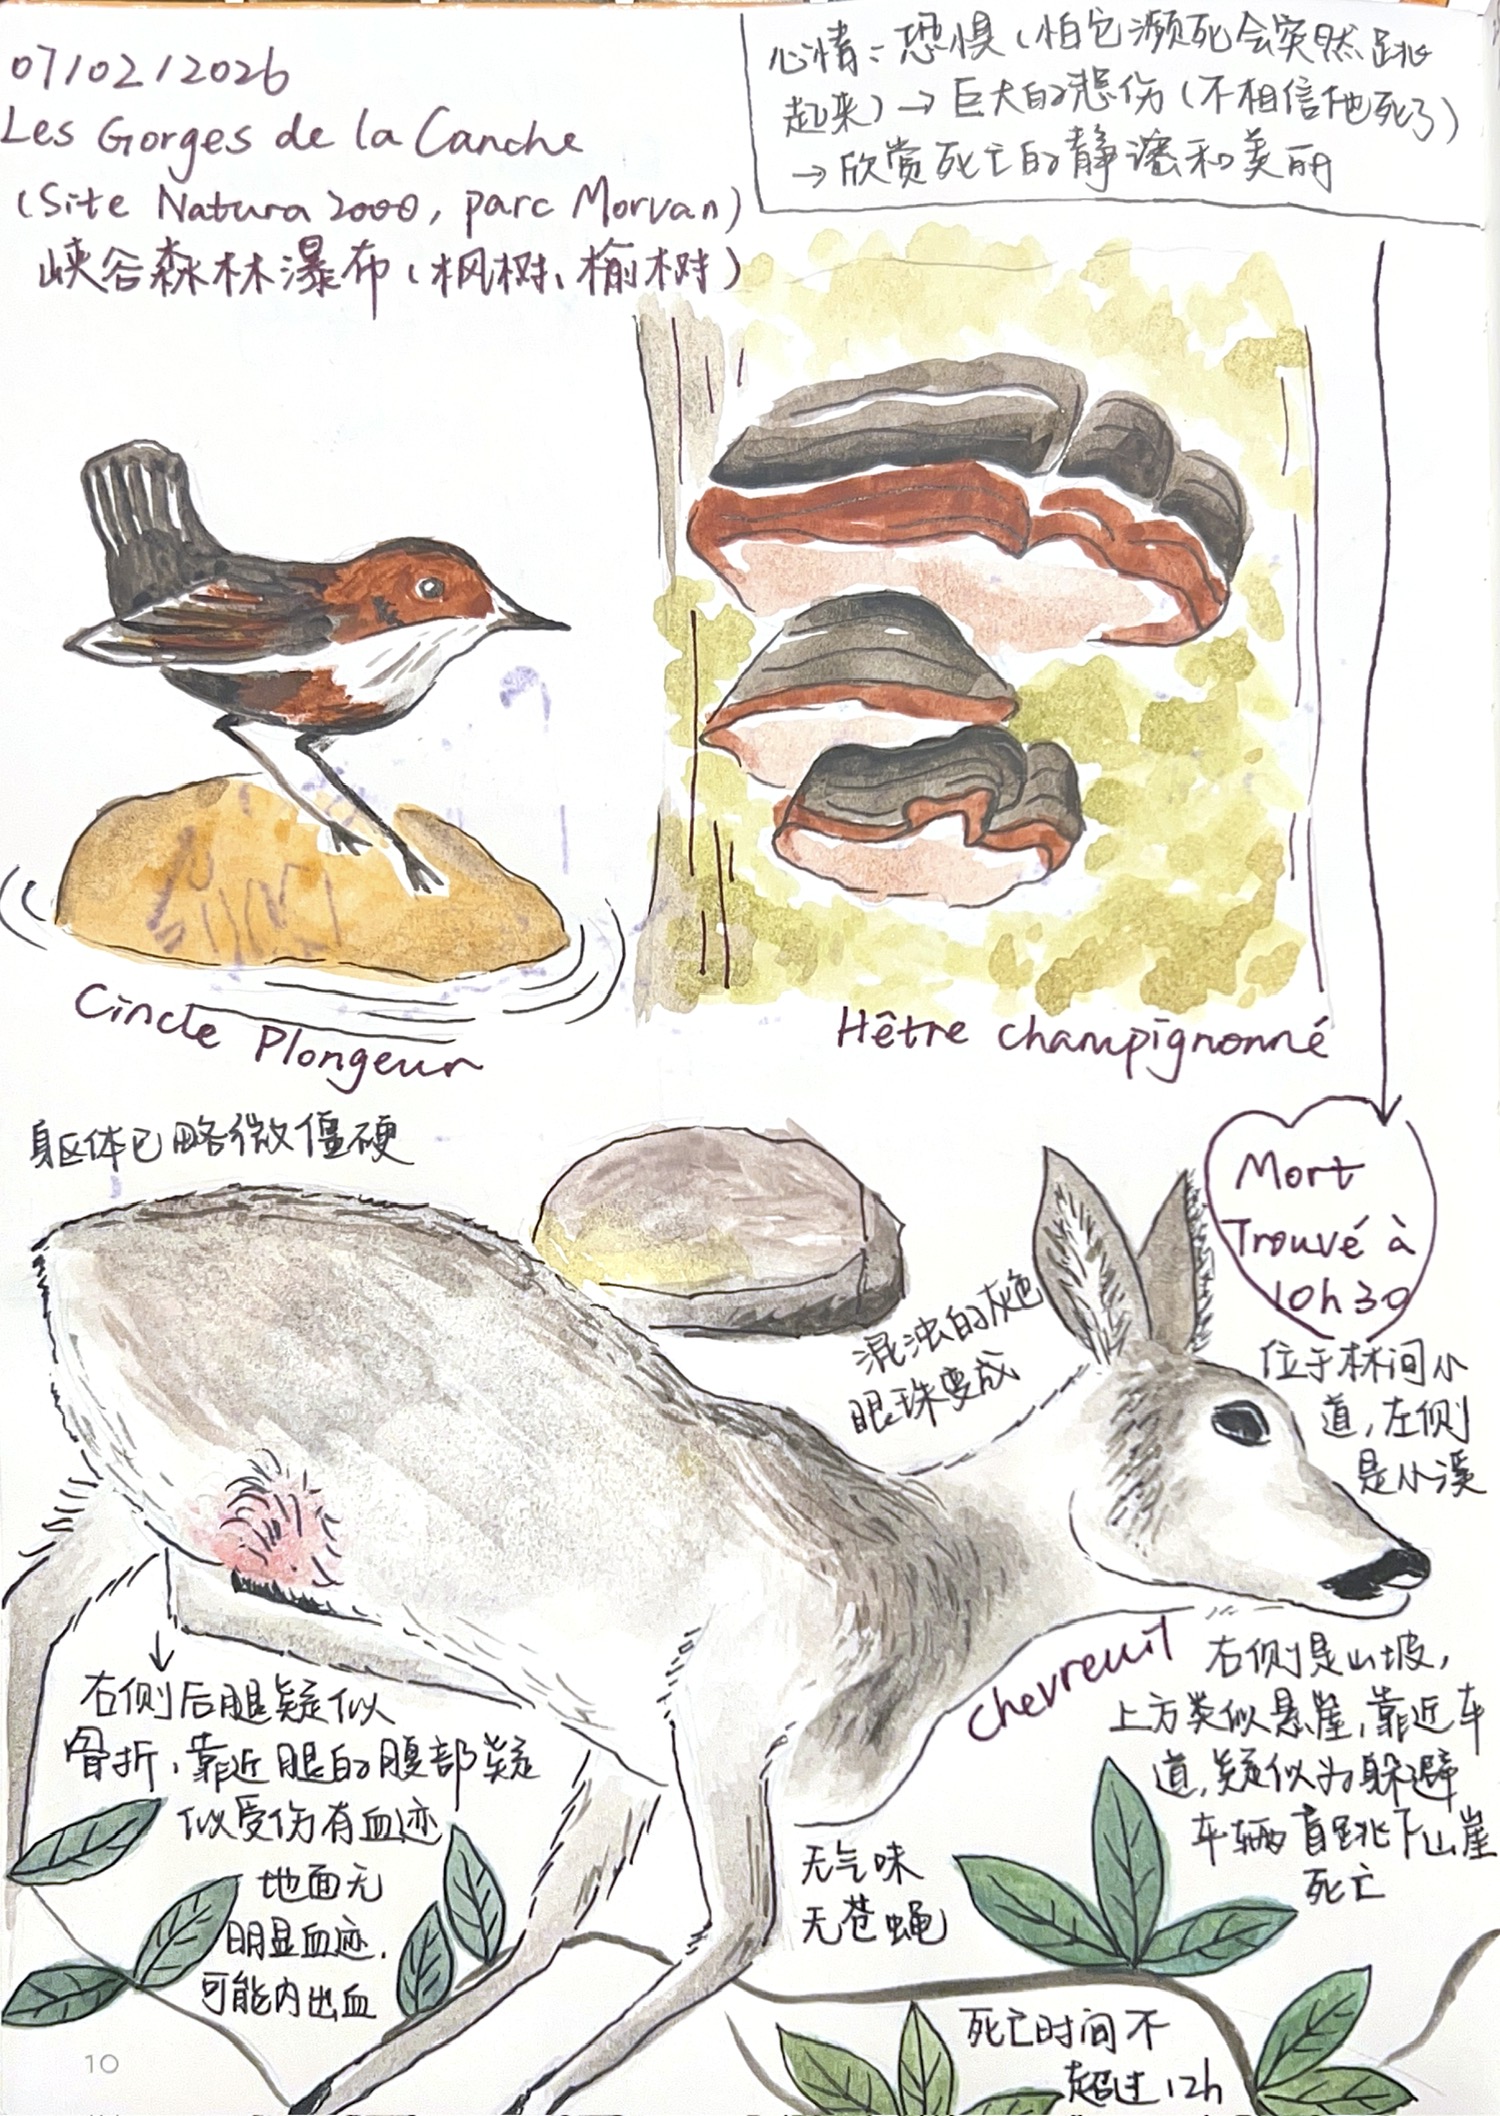 07/02/2026
Les Gorges de la Canche
(Site Natura 2000, parc Morvan)
峡谷森林瀑布(枫树、榆树)
心情:恐惧(怕它濒死会突然跳
起来)→巨大的悲伤(不相信他死了)
→欣赏死亡的静谧和美丽
Cincle Plongeur
Hêtre champignonné
Mort
Trouvé à
10h30
位于林间小
道,左侧
是小溪
身躯体已略微僵硬
混浊的灰色
眼珠变成
Chevreuil
右侧是山坡,
上方类似悬崖,靠近车
道,疑似为躲避
车辆盲跳下山崖
死亡
右侧后腿疑似
骨折,靠近腿的腹部疑
似受伤有血迹
地面无
明显血迹.
可能内出血
无气味
无苍蝇
死亡时间不
超过12h
10